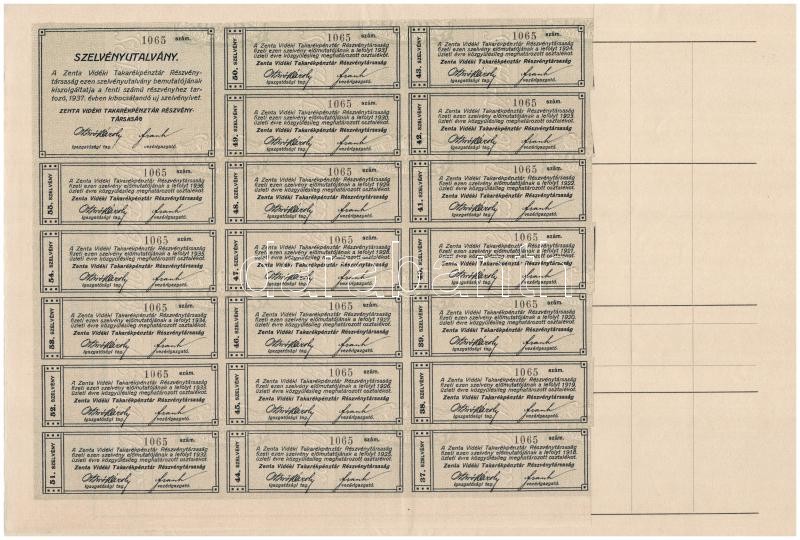 1065 szám.
SZELVÉNYUTALVÁNY.
A Zenta Vidéki Takarékpénztár Részvény-
társaság ezen szelvényutalvány bemutatójának
kiszolgáltatja a fenti számú részvényhez tar-
tozó, 1937. évben kibocsátandó új szelvényívet.
ZENTA VIDÉKI TAKARÉKPÉNZTÁR RÉSZVÉNY-
TÁRSASÁG
igazgatósági tag. vezérigazgató.
55. SZELVÉNY
1065 szám.
A Zenta Vidéki Takarékpénztár Részvénytársaság
fizeti ezen szelvény előmutatójának a lefolyt 1936.
üzleti évre közgyűlésileg meghatározott osztalékot.
Zenta Vidéki Takarékpénztár Részvénytársaság
igazgatósági tag. vezérigazgató.
54. SZELVÉNY
1065 szám.
A Zenta Vidéki Takarékpénztár Részvénytársaság
fizeti ezen szelvény előmutatójának a lefolyt 1935.
üzleti évre közgyűlésileg meghatározott osztalékot.
Zenta Vidéki Takarékpénztár Részvénytársaság
igazgatósági tag. vezérigazgató.
53. SZELVÉNY
1065 szám.
A Zenta Vidéki Takarékpénztár Részvénytársaság
fizeti ezen szelvény előmutatójának a lefolyt 1934.
üzleti évre közgyűlésileg meghatározott osztalékot.
Zenta Vidéki Takarékpénztár Részvénytársaság
igazgatósági tag. vezérigazgató.
52. SZELVÉNY
1065 szám.
A Zenta Vidéki Takarékpénztár Részvénytársaság
fizeti ezen szelvény előmutatójának a lefolyt 1933.
üzleti évre közgyűlésileg meghatározott osztalékot.
Zenta Vidéki Takarékpénztár Részvénytársaság
igazgatósági tag. vezérigazgató.
51. SZELVÉNY
1065 szám.
A Zenta Vidéki Takarékpénztár Részvénytársaság
fizeti ezen szelvény előmutatójának a lefolyt 1932.
üzleti évre közgyűlésileg meghatározott osztalékot.
Zenta Vidéki Takarékpénztár Részvénytársaság
igazgatósági tag. vezérigazgató.
50. SZELVÉNY
1065 szám.
A Zenta Vidéki Takarékpénztár Részvénytársaság
fizeti ezen szelvény előmutatójának a lefolyt 1931.
üzleti évre közgyűlésileg meghatározott osztalékot.
Zenta Vidéki Takarékpénztár Részvénytársaság
igazgatósági tag. vezérigazgató.
49. SZELVÉNY
1065 szám.
A Zenta Vidéki Takarékpénztár Részvénytársaság
fizeti ezen szelvény előmutatójának a lefolyt 1930.
üzleti évre közgyűlésileg meghatározott osztalékot.
Zenta Vidéki Takarékpénztár Részvénytársaság
igazgatósági tag. vezérigazgató.
48. SZELVÉNY
1065 szám.
A Zenta Vidéki Takarékpénztár Részvénytársaság
fizeti ezen szelvény előmutatójának a lefolyt 1929.
üzleti évre közgyűlésileg meghatározott osztalékot.
Zenta Vidéki Takarékpénztár Részvénytársaság
igazgatósági tag. vezérigazgató.
47. SZELVÉNY
1065 szám.
A Zenta Vidéki Takarékpénztár Részvénytársaság
fizeti ezen szelvény előmutatójának a lefolyt 1928.
üzleti évre közgyűlésileg meghatározott osztalékot.
Zenta Vidéki Takarékpénztár Részvénytársaság
igazgatósági tag. vezérigazgató.
46. SZELVÉNY
1065 szám.
A Zenta Vidéki Takarékpénztár Részvénytársaság
fizeti ezen szelvény előmutatójának a lefolyt 1927.
üzleti évre közgyűlésileg meghatározott osztalékot.
Zenta Vidéki Takarékpénztár Részvénytársaság
igazgatósági tag. vezérigazgató.
45. SZELVÉNY
1065 szám.
A Zenta Vidéki Takarékpénztár Részvénytársaság
fizeti ezen szelvény előmutatójának a lefolyt 1926.
üzleti évre közgyűlésileg meghatározott osztalékot.
Zenta Vidéki Takarékpénztár Részvénytársaság
igazgatósági tag. vezérigazgató.
44. SZELVÉNY
1065 szám.
A Zenta Vidéki Takarékpénztár Részvénytársaság
fizeti ezen szelvény előmutatójának a lefolyt 1925.
üzleti évre közgyűlésileg meghatározott osztalékot.
Zenta Vidéki Takarékpénztár Részvénytársaság
igazgatósági tag. vezérigazgató.
43. SZELVÉNY
1065 szám.
A Zenta Vidéki Takarékpénztár Részvénytársaság
fizeti ezen szelvény előmutatójának a lefolyt 1924.
üzleti évre közgyűlésileg meghatározott osztalékot.
Zenta Vidéki Takarékpénztár Részvénytársaság
igazgatósági tag. vezérigazgató.
42. SZELVÉNY
1065 szám.
A Zenta Vidéki Takarékpénztár Részvénytársaság
fizeti ezen szelvény előmutatójának a lefolyt 1923.
üzleti évre közgyűlésileg meghatározott osztalékot.
Zenta Vidéki Takarékpénztár Részvénytársaság
igazgatósági tag. vezérigazgató.
41. SZELVÉNY
1065 szám.
A Zenta Vidéki Takarékpénztár Részvénytársaság
fizeti ezen szelvény előmutatójának a lefolyt 1922.
üzleti évre közgyűlésileg meghatározott osztalékot.
Zenta Vidéki Takarékpénztár Részvénytársaság
igazgatósági tag. vezérigazgató.
SZELVÉNY
1065 szám.
A Zenta Vidéki Takarékpénztár Részvénytársaság
fizeti ezen szelvény előmutatójának a lefolyt 1921.
üzleti évre közgyűlésileg meghatározott osztalékot.
Zenta Vidéki Takarékpénztár Részvénytársaság
igazgatósági tag. vezérigazgató.
39. SZELVÉNY
1065 szám.
A Zenta Vidéki Takarékpénztár Részvénytársaság
fizeti ezen szelvény előmutatójának a lefolyt 1920.
üzleti évre közgyűlésileg meghatározott osztalékot.
Zenta Vidéki Takarékpénztár Részvénytársaság
igazgatósági tag. vezérigazgató.
38. SZELVÉNY
1065 szám.
A Zenta Vidéki Takarékpénztár Részvénytársaság
fizeti ezen szelvény előmutatójának a lefolyt 1919.
üzleti évre közgyűlésileg meghatározott osztalékot.
Zenta Vidéki Takarékpénztár Részvénytársaság
igazgatósági tag. vezérigazgató.
37. SZELVÉNY
1065 szám.
A Zenta Vidéki Takarékpénztár Részvénytársaság
fizeti ezen szelvény előmutatójának a lefolyt 1918.
üzleti évre közgyűlésileg meghatározott osztalékot.
Zenta Vidéki Takarékpénztár Részvénytársaság
igazgatósági tag. vezérigazgató.
darabanth